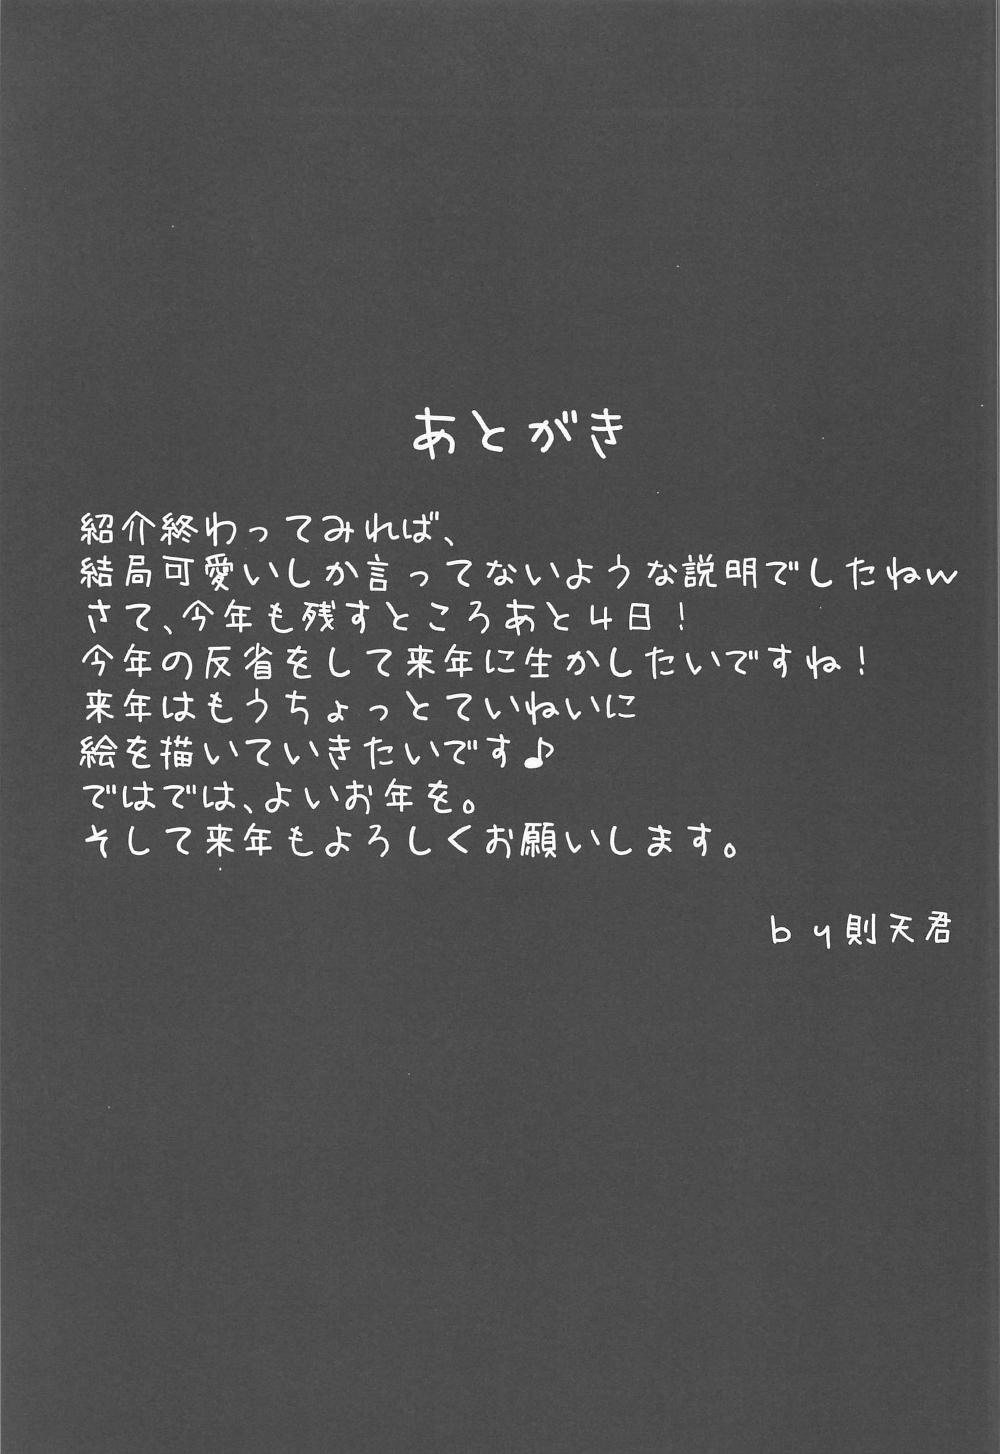 あとがき
紹介終わってみれば、
結局可愛いしか言ってないような説明でしたねw
さて、今年も残すところあと4日！
今年の反省をして来年に生かしたいですね！
来年はもうちょっとていねいに
絵を描いていきたいです♪
ではでは、よいお年を。
そして来年もよろしくお願いします。
by則天君